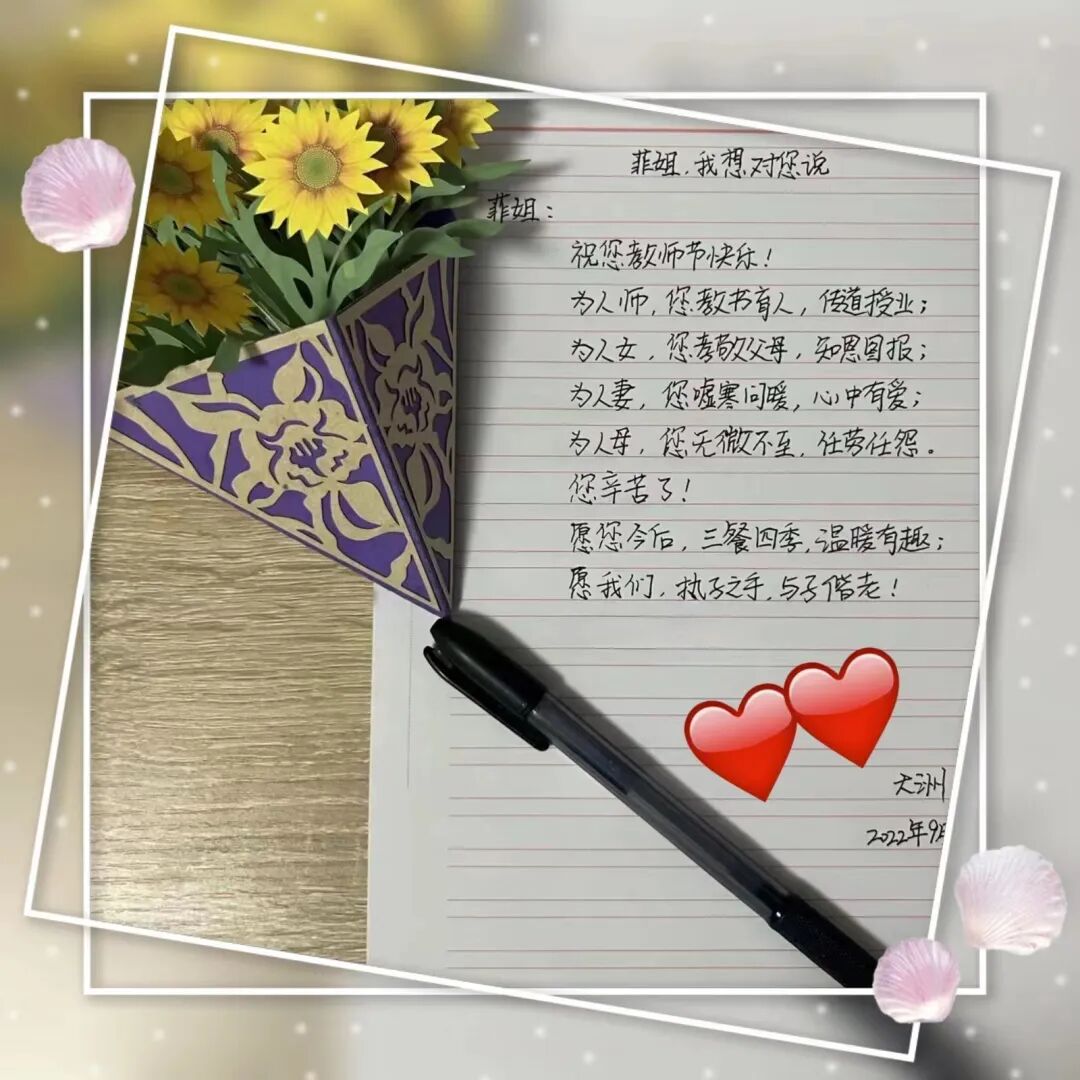 菲姐，我想对您说
菲姐：
祝您教师节快乐！
为人师，您教书育人，传道授业；
为人女，您孝敬父母，知恩图报；
为人妻，您嘘寒问暖，心中有爱；
为人母，您无微不至，任劳任怨。
您辛苦了！
愿您今后，三餐四季，温暖有趣；
愿我们，执子之手，与子偕老！
大洲
2022年9月